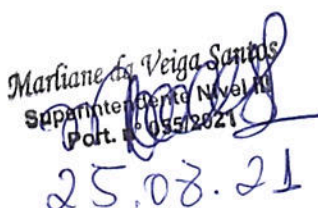 Marliane da Veiga Santos
Superintendente Nível III
Port. nº 035/2021
25.08.21